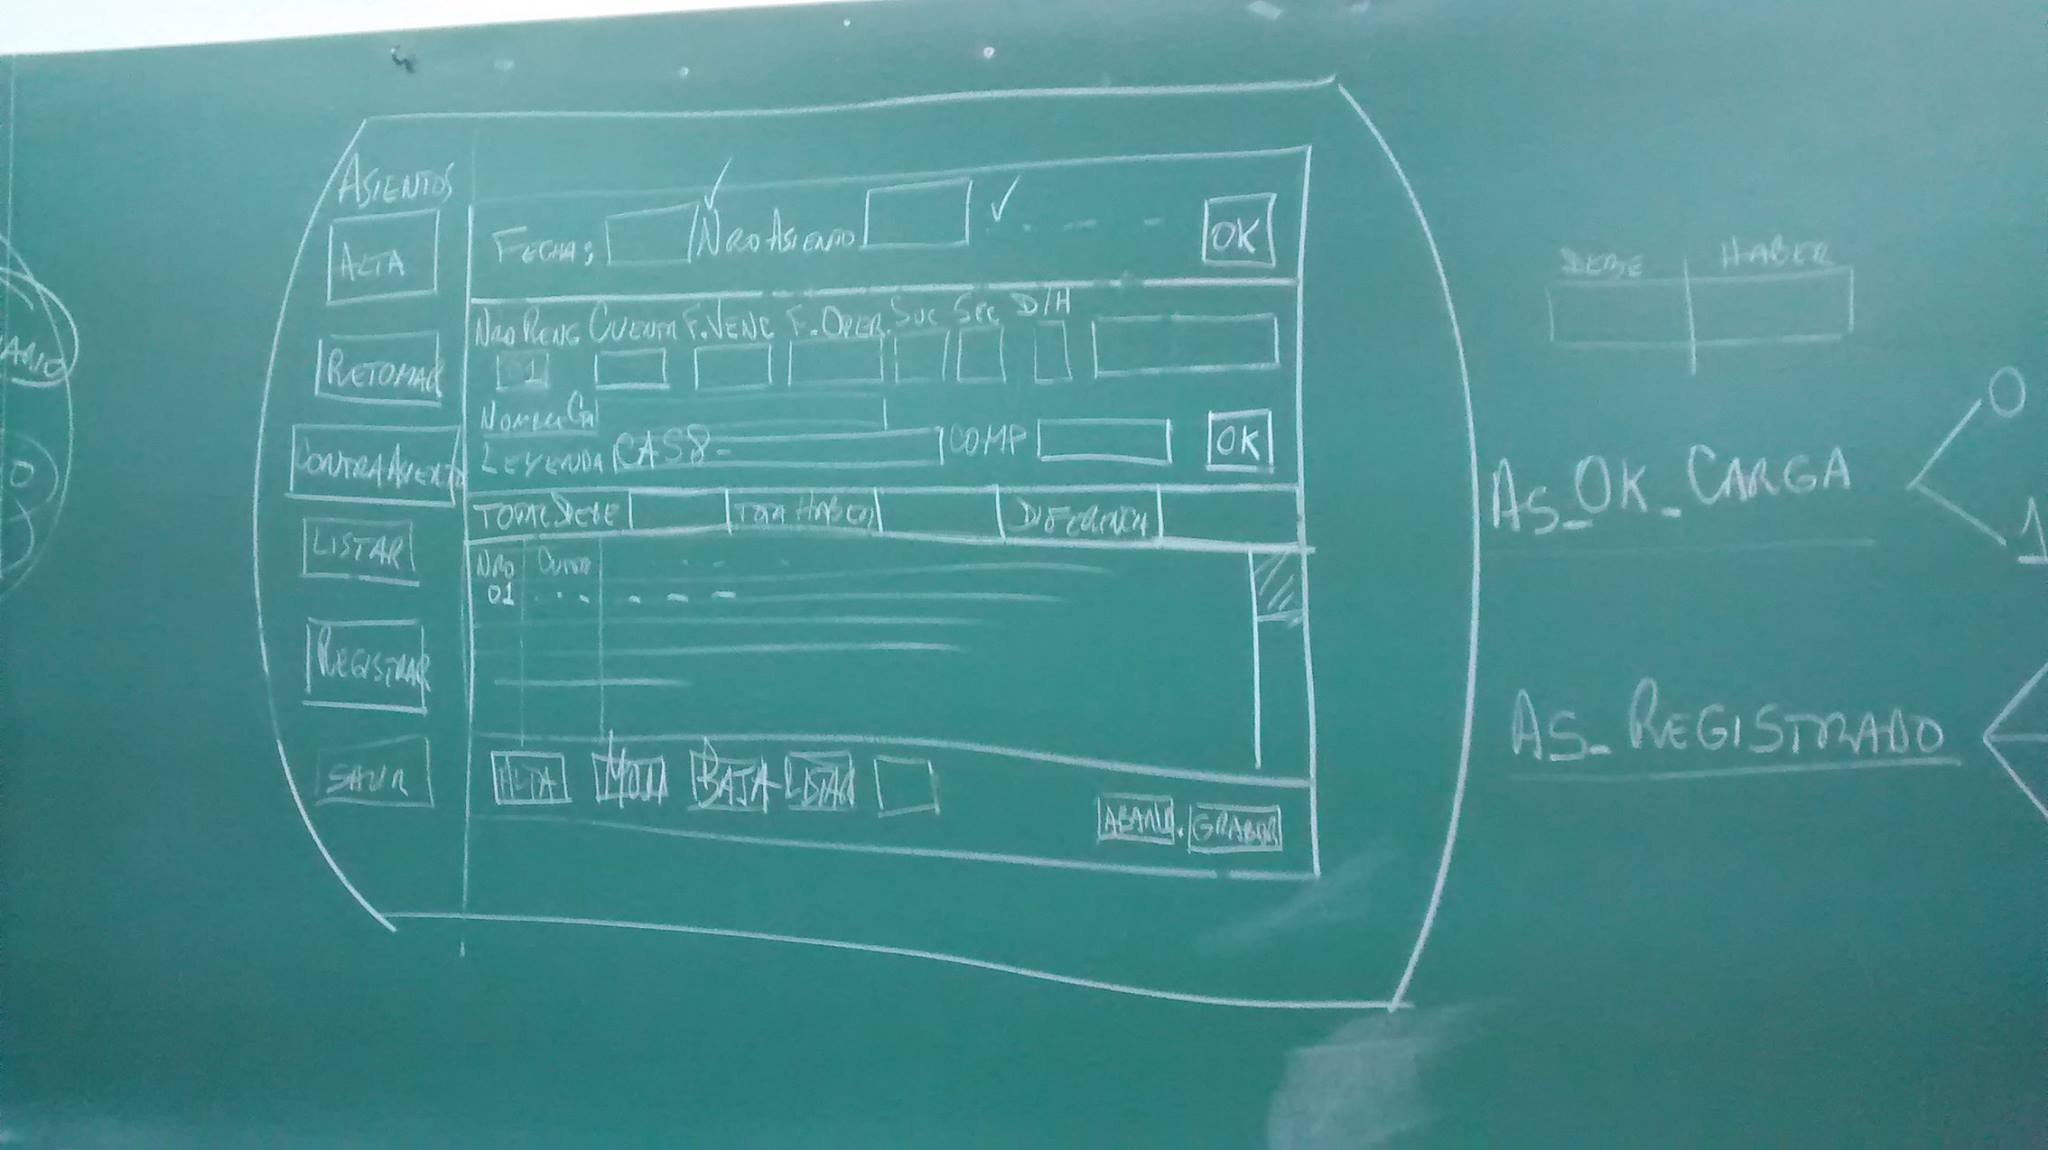 ASIENTOS
ALTA
RETOMAR
CONTRAASIENTO
LISTAR
REGISTRAR
SALIR
FECHA: NRO ASIENTO OK
NRO RENG CUENTA F.VENC F.OPER. SUC SEC D/H
01
NOMBRE CTA
LEYENDA CAS8- COMP OK
TOTAL DEBE TOTA HABER DIFERENCIA
NRO CUENTA
01
ALTA MODI BAJA LISTAR
ABAND. GRABAR
DEBE HABER
AS_OK_CARGA
0
1
AS_REGISTRADO
ARIO
O